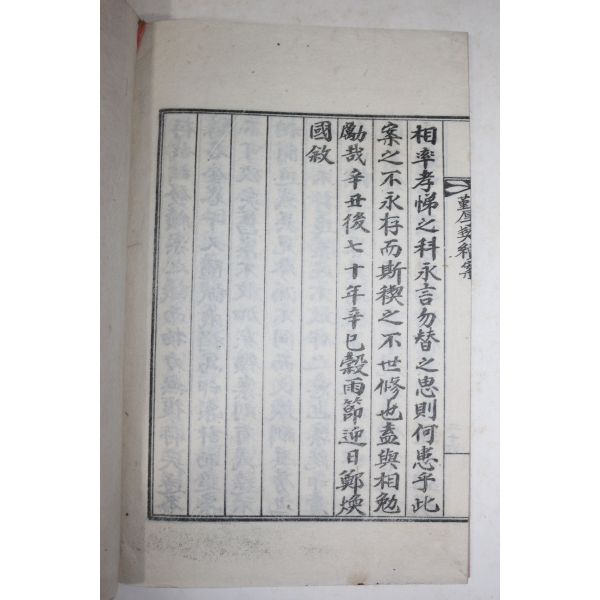 相率孝悌之科永言勿替之忠則何患乎此
案之不永存而斯稧之不世修也盍與相勉
勵哉辛丑後七十年辛巳穀雨節迎日鄭煥
國敘
契續案